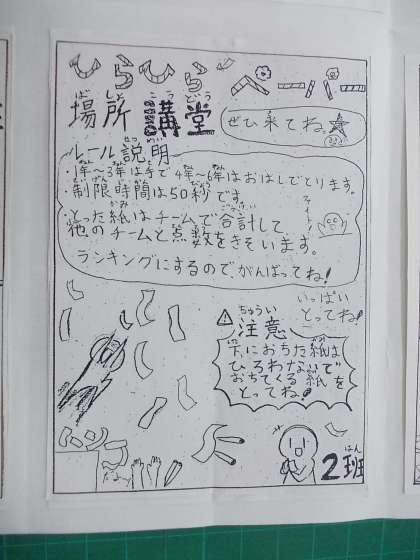 ひらひらペーパー
場所 講堂
ぜひ来てね
ルール説明
・1年～3年は手で4年～6年はおはしでとります。
・制限時間は50秒です。
・とった紙はチームで合計して
他のチームと点数をきそいます。
ランキングにするので、がんばってね!
いっぱい
とってね!
注意
下におちた紙は
ひろわないで
おちてくる紙を
とってね!
2班